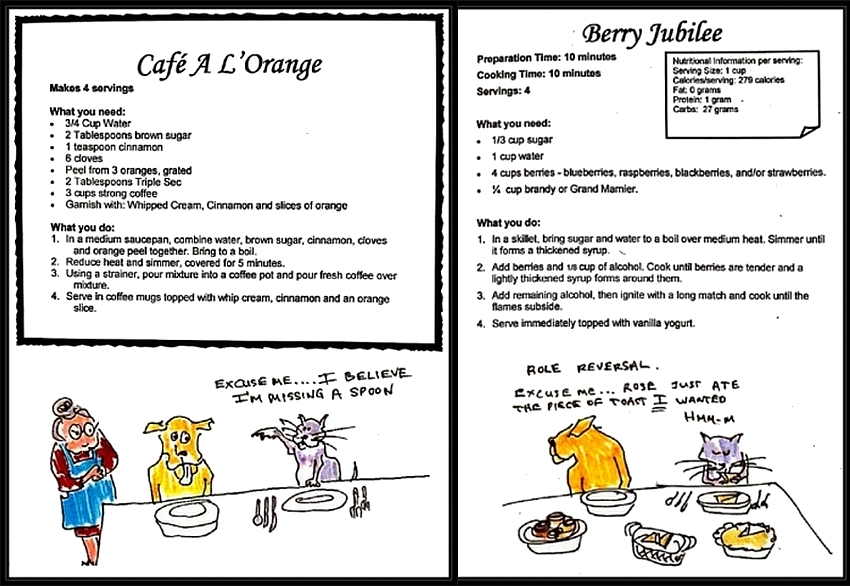 Café A L'Orange
Makes 4 servings
What you need:
• 3/4 Cup Water
• 2 Tablespoons brown sugar
• 1 teaspoon cinnamon
• 6 cloves
• Peel from 3 oranges, grated
• 2 Tablespoons Triple Sec
• 3 cups strong coffee
• Garnish with: Whipped Cream, Cinnamon and slices of orange
What you do:
1. In a medium saucepan, combine water, brown sugar, cinnamon, cloves
and orange peel together. Bring to a boil.
2. Reduce heat and simmer, covered for 5 minutes.
3. Using a strainer, pour mixture into a coffee pot and pour fresh coffee over
mixture.
4. Serve in coffee mugs topped with whip cream, cinnamon and an orange
slice.
EXCUSE ME....I BELIEVE
I'M MISSING A SPOON
Berry Jubilee
Preparation Time: 10 minutes
Cooking Time: 10 minutes
Servings: 4
Nutritional Information per serving:
Serving Size: 1 cup
Calories/serving: 279 calories
Fat: 0 grams
Protein: 1 gram
Carbs: 27 grams
What you need:
• 1/3 cup sugar
• 1 cup water
• 4 cups berries - blueberries, raspberries, blackberries, and/or strawberries.
• ¼ cup brandy or Grand Marnier.
What you do:
1. In a skillet, bring sugar and water to a boil over medium heat. Simmer until
it forms a thickened syrup.
2. Add berries and 1/8 cup of alcohol. Cook until berries are tender and a
lightly thickened syrup forms around them.
3. Add remaining alcohol, then ignite with a long match and cook until the
flames subside.
4. Serve immediately topped with vanilla yogurt.
ROLE REVERSAL.
EXCUSE ME... ROSE JUST ATE
THE PIECE OF TOAST I WANTED
HMM-M